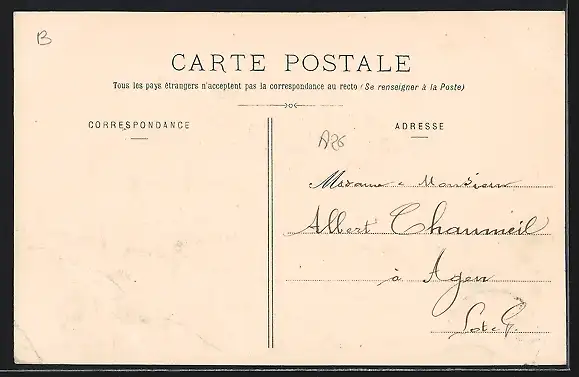 B
CARTE POSTALE
Tous les pays étrangers n'acceptent pas la correspondance au recto (Se renseigner à la Poste)
CORRESPONDANCE
ADRESSE
A26
Madame & Monsieur
Albert Chaumeil
à Agen
Lot-&-G.